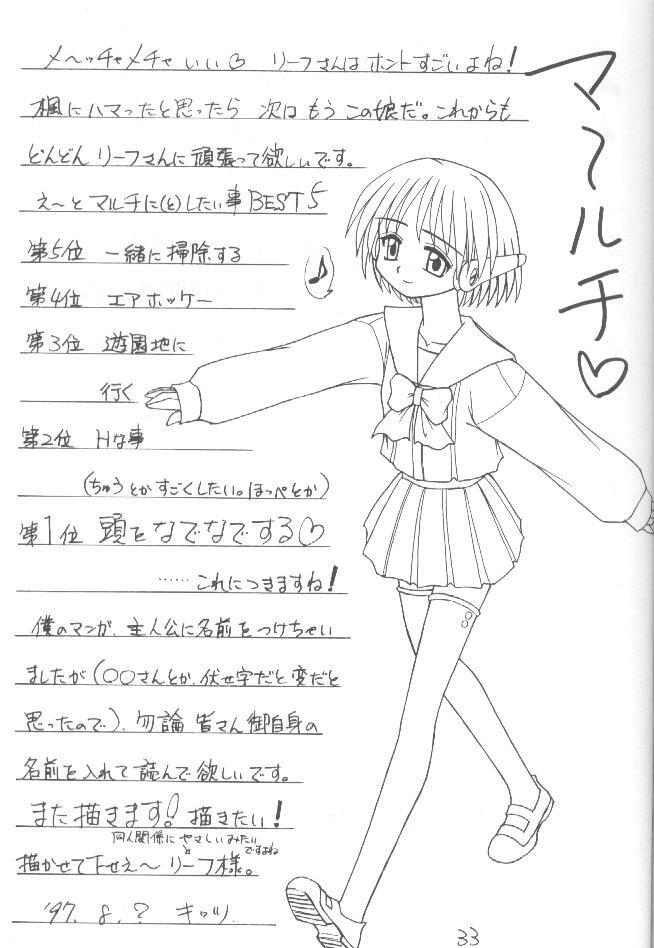 メ〜ッチャメチャ いい♡ リーフさんは ホントすごいよね!
マルチ♡
楓にハマったと思ったら 次は もう この娘だ。これからも
どんどん リーフさんに頑張って欲しいです。
え〜と マルチに(と)したい事BEST5
第5位 一緒に掃除する
第4位 エアホッケー
第3位 遊園地に
行く
第2位 Hな事
(ちゅうとかすごくしたい。ほっぺとか)
第1位 頭をなでなでする♡
……これにつきますね!
僕のマンガ、主人公に名前をつけちゃい
ましたが(○○さんとか、伏せ字だと変だと
思ったので)、勿論 皆さん御自身の
名前を入れて読んで欲しいです。
また描きます! 描きたい!
同人関係に やさしいみたい
ですよね
描かせて下せえ〜 リーフ様。
'97. 8. ? キッツ
33